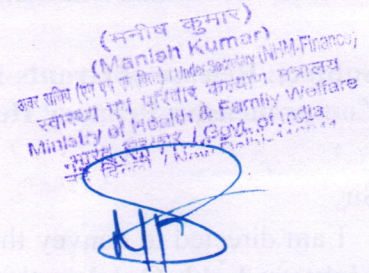 (मनीष कुमार)
(Manish Kumar)
अवर सचिव (एन एच एम वित्त)/Under Secretary (NHM-Finance)
स्वास्थ्य एवं परिवार कल्याण मंत्रालय
Ministry of Health & Family Welfare
भारत सरकार / Govt. of India
नई दिल्ली / New Delhi-
I am directed to convey